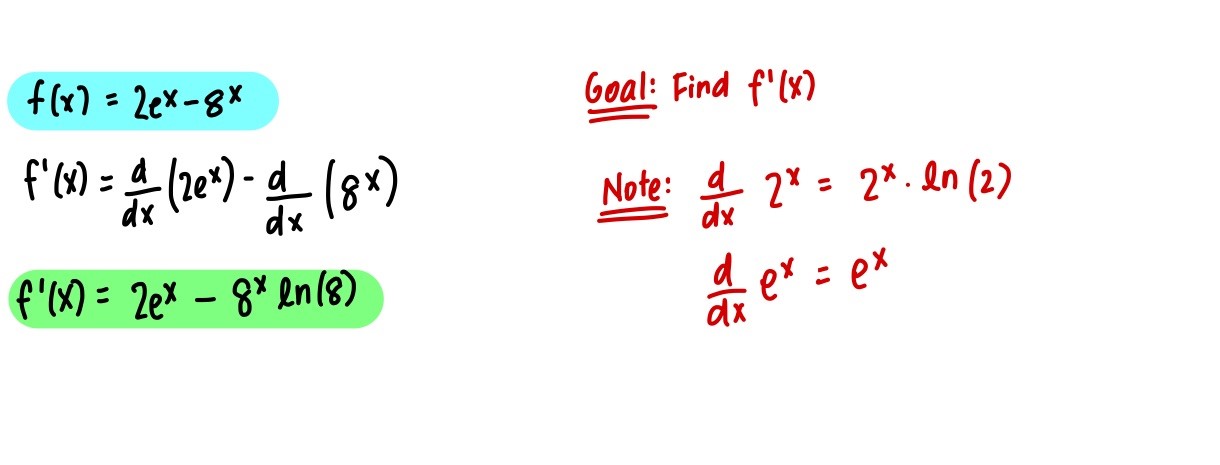 f(x) = 2eˣ - 8ˣ
f'(x) = d/dx (2eˣ) - d/dx (8ˣ)
f'(x) = 2eˣ - 8ˣ ln(8)
Goal: Find f'(x)
Note: d/dx 2ˣ = 2ˣ · ln(2)
d/dx eˣ = eˣ